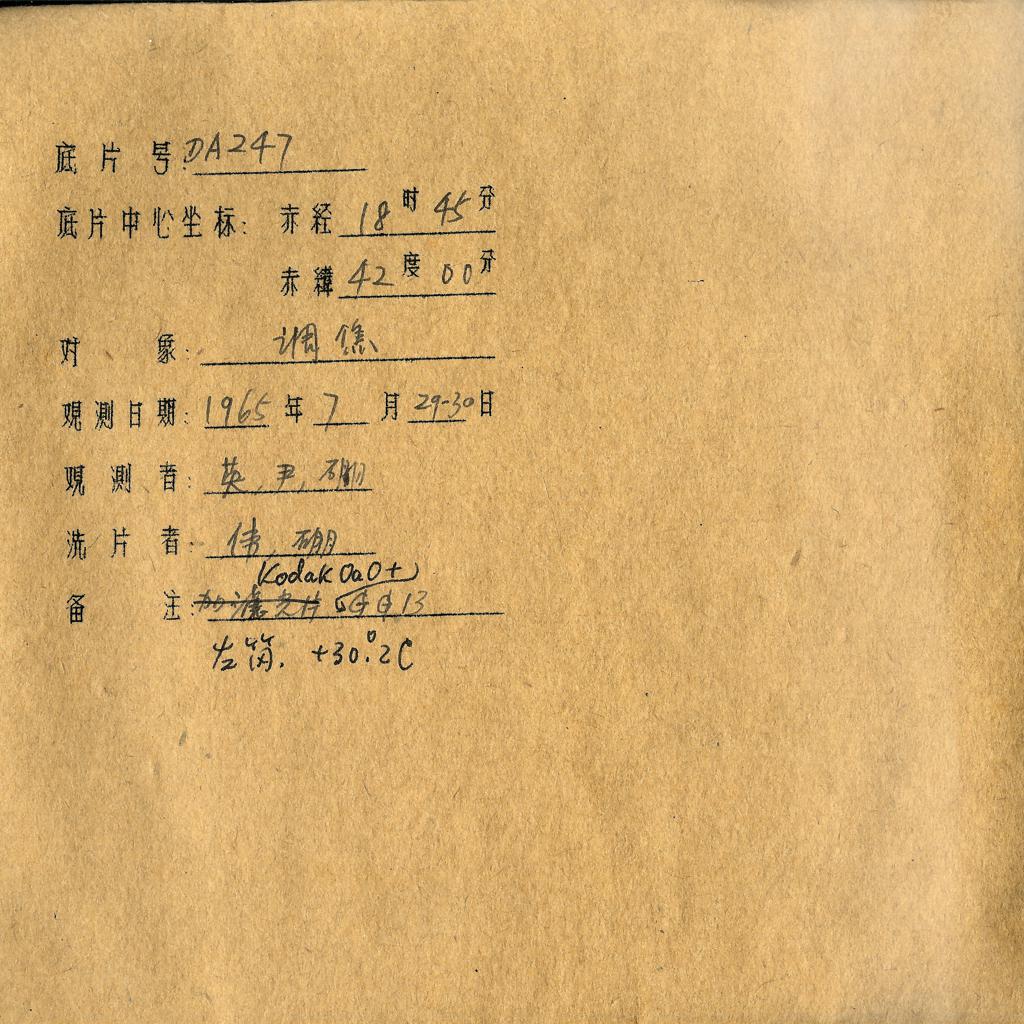 底片号: DA247
底片中心坐标: 赤经 18时 45分
赤緯 42度 00分
对象: 调焦
观测日期: 1965年 7月 29-30日
观测者: 英, 尹, 硼
洗片者: 伟, 硼
Kodak OaO
备注: 加滤光片 13
左筒. +30°.2C